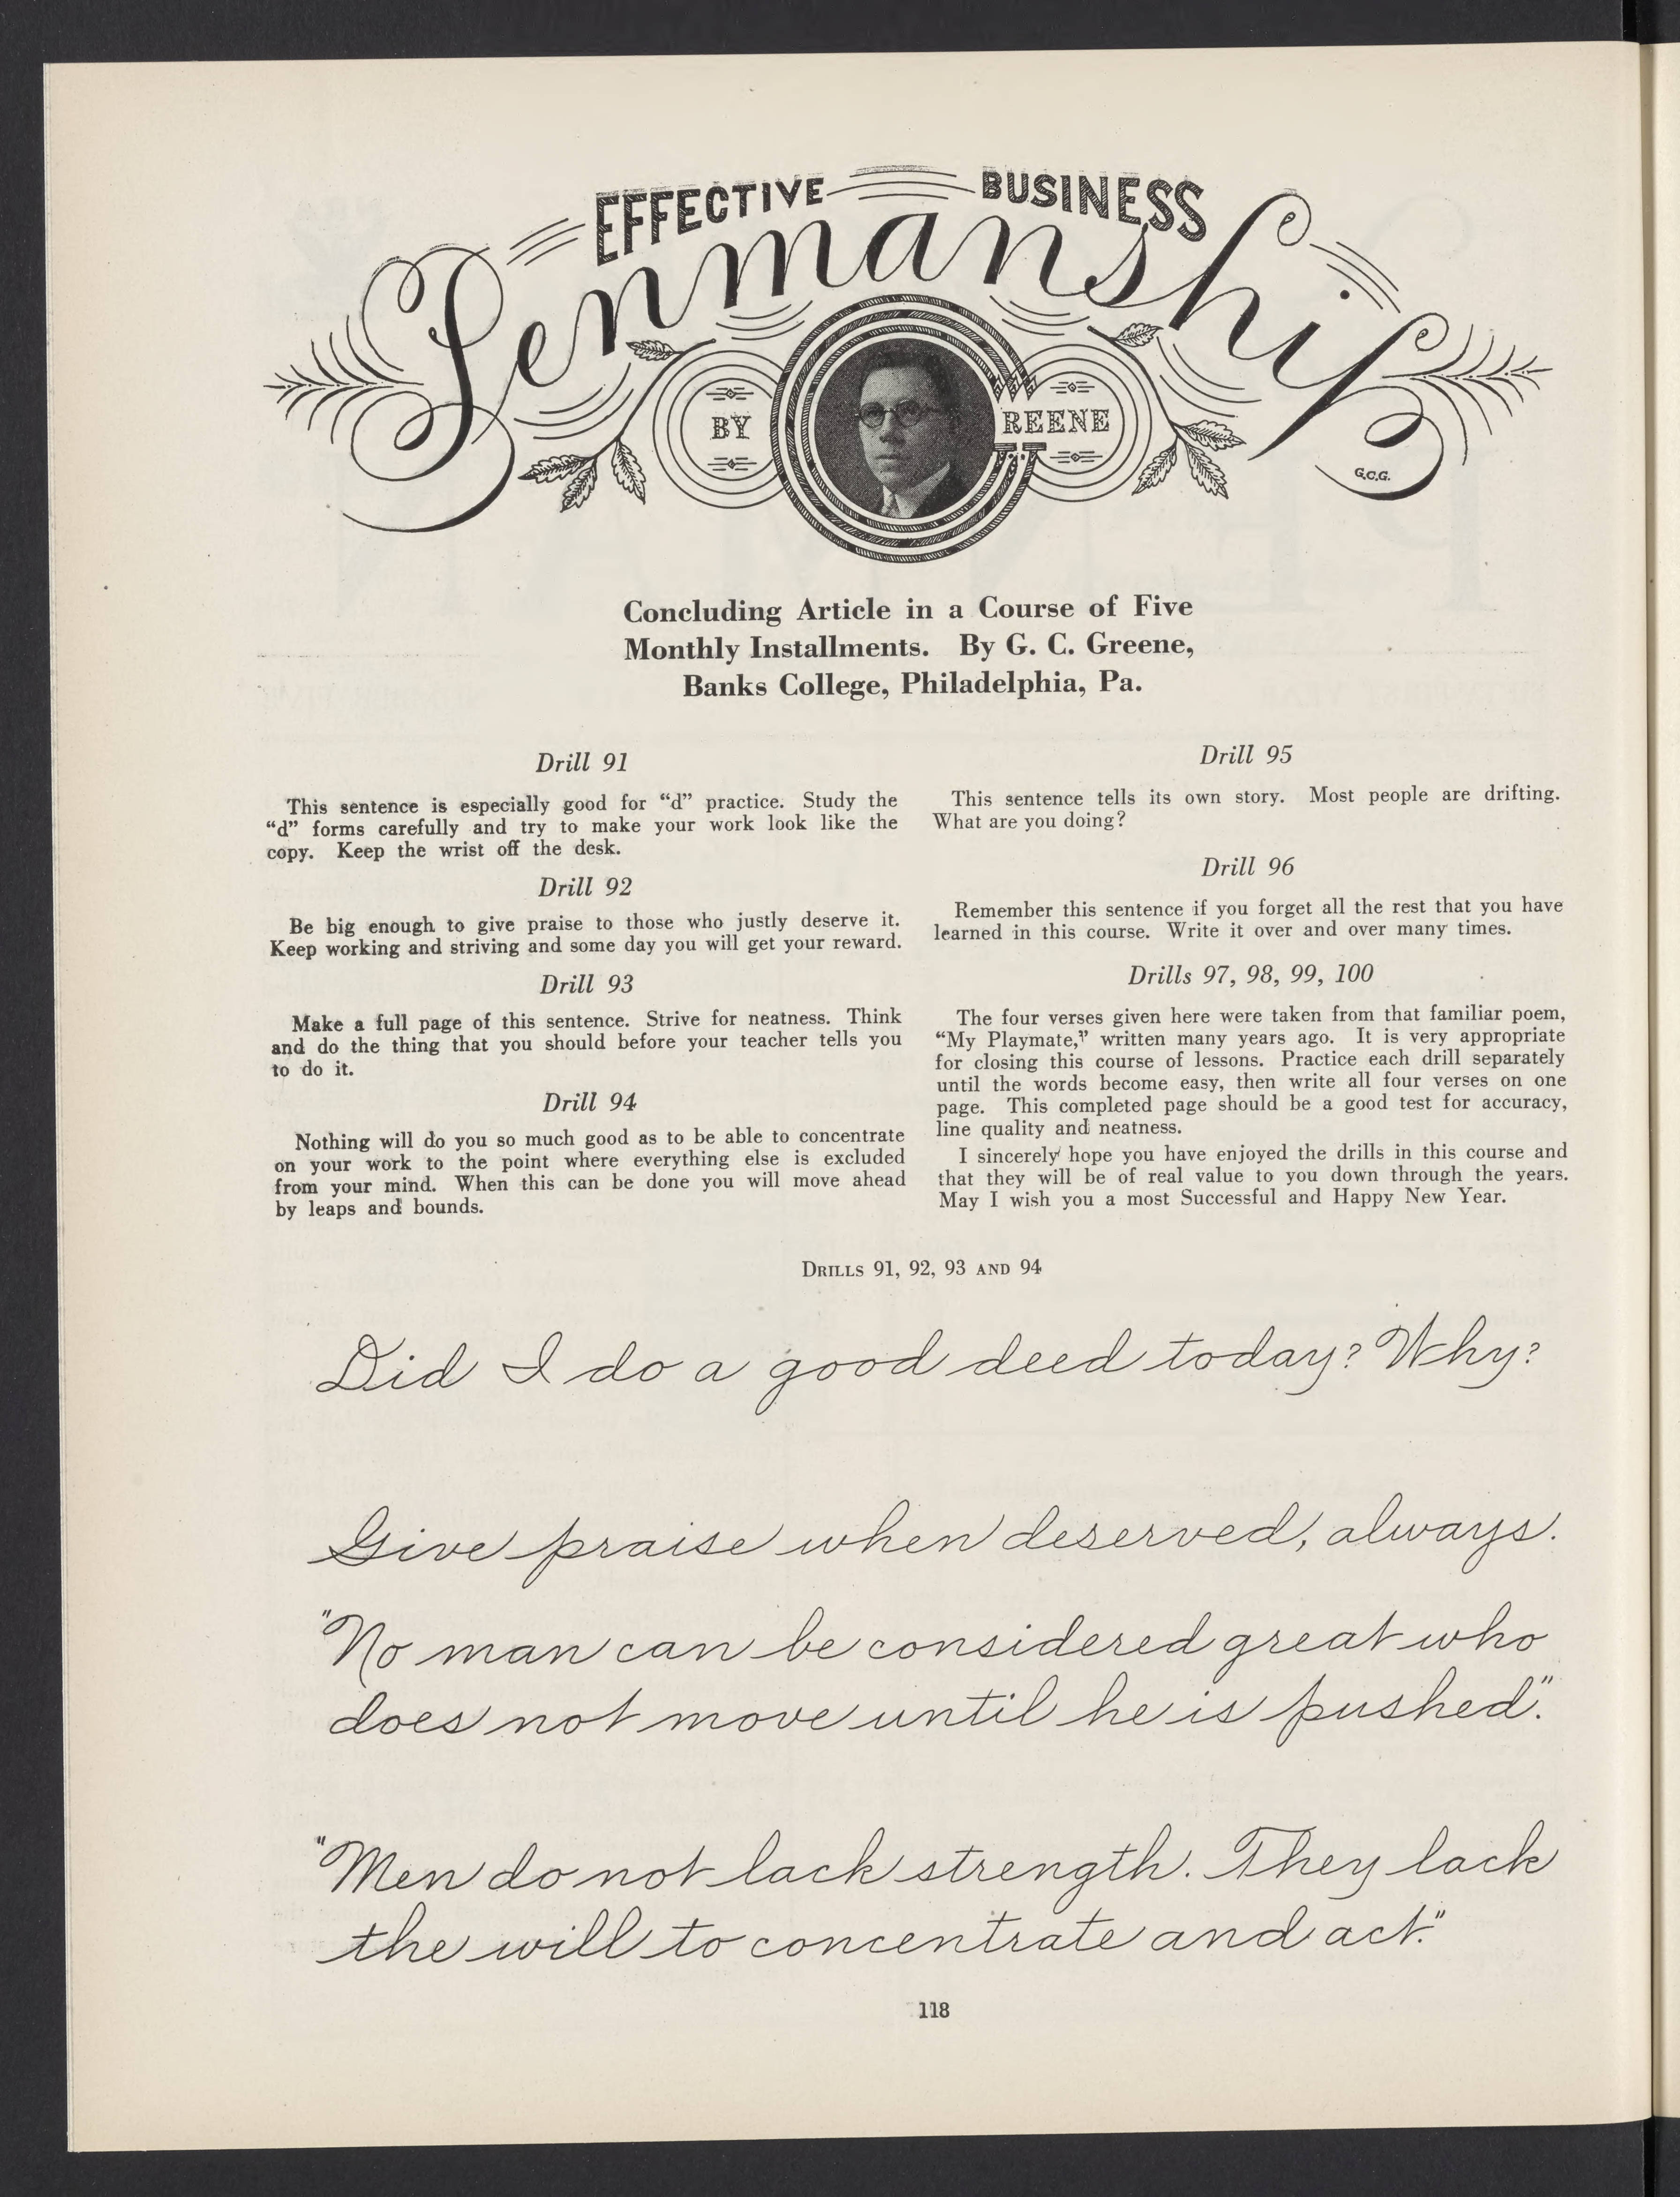 EFFECTIVE BUSINESS
Penmanship
BY
REENE
G.C.G.
Concluding Article in a Course of Five
Monthly Installments. By G. C. Greene,
Banks College, Philadelphia, Pa.
Drill 91
This sentence is especially good for “d” practice. Study the
“d” forms carefully and try to make your work look like the
copy. Keep the wrist off the desk.
Drill 92
Be big enough to give praise to those who justly deserve it.
Keep working and striving and some day you will get your reward.
Drill 93
Make a full page of this sentence. Strive for neatness. Think
and do the thing that you should before your teacher tells you
to do it.
Drill 94
Nothing will do you so much good as to be able to concentrate
on your work to the point where everything else is excluded
from your mind. When this can be done you will move ahead
by leaps and bounds.
Drill 95
This sentence tells its own story. Most people are drifting.
What are you doing?
Drill 96
Remember this sentence if you forget all the rest that you have
learned in this course. Write it over and over many times.
Drills 97, 98, 99, 100
The four verses given here were taken from that familiar poem,
“My Playmate,” written many years ago. It is very appropriate
for closing this course of lessons. Practice each drill separately
until the words become easy, then write all four verses on one
page. This completed page should be a good test for accuracy,
line quality and neatness.
I sincerely hope you have enjoyed the drills in this course and
that they will be of real value to you down through the years.
May I wish you a most Successful and Happy New Year.
DRILLS 91, 92, 93 AND 94
Did I do a good deed today? Why?
Give praise when deserved, always.
"No man can be considered great who
does not move until he is pushed."
"Men do not lack strength. They lack
the will to concentrate and act."
118